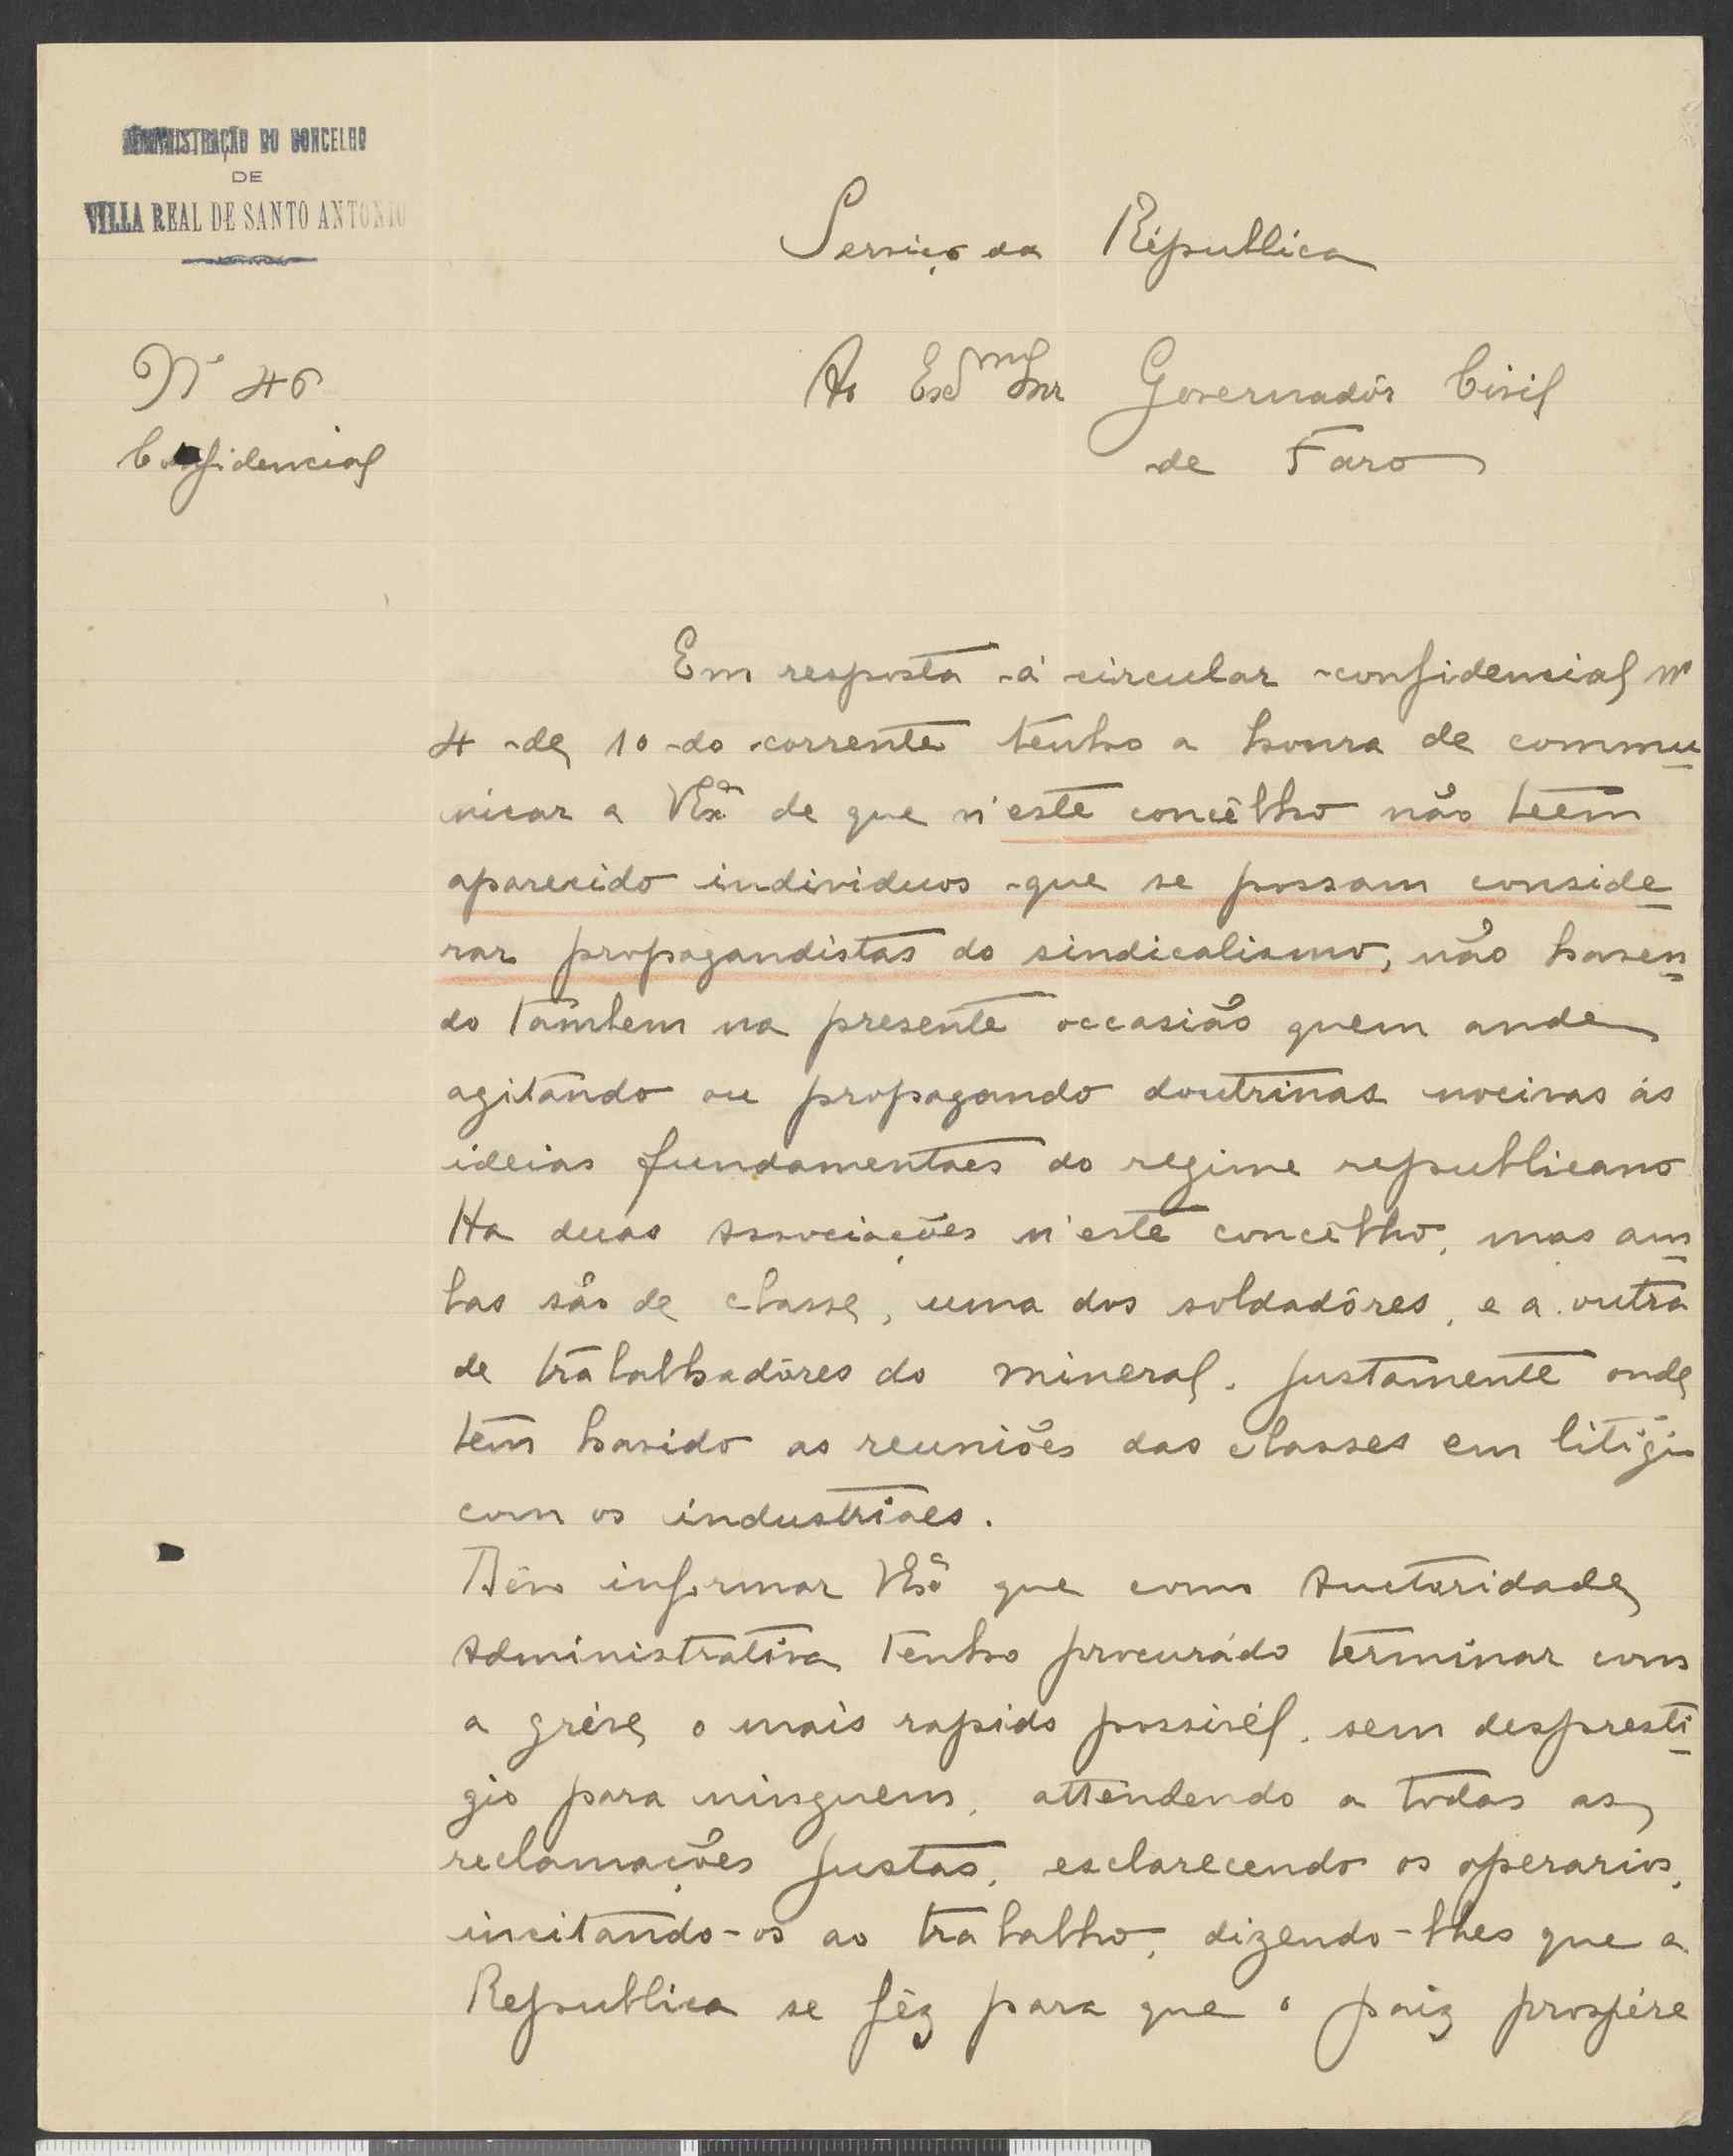 ADMINISTRAÇÃO DO CONCELHO
DE
VILLA REAL DE SANTO ANTONIO
Serviço da Républica
Nº 46
Confidencial
Ao Exmº Snr Governadôr Civil
de Faro
Em resposta á circular confidencial nº
4 de 10 do corrente tenho a honra de commu
nicar a VExª de que n'este concêlho não teem
aparecido individuos que se possam conside
rar propagandistas do sindicalismo, não haven
do tambem na presente occasião quem ande
agitando ou propagando doutrinas nocivas ás
ideias fundamentaes do regime republicano
Ha duas Associações n'este concêlho, mas am
bas são de classe, uma dos soldadôres, e a outra
de trabalhadôres do mineral. Justamente onde
tem havido as reuniões das classes em litigio
com os industriaes.
Devo informar VExª que como Auctoridade
Administrativa tenho procurádo terminar com
a gréve o mais rapido possivél, sem despresti
gio para ninguem, attendendo a todas as
reclamações justas, esclarecendo os operarios,
incitando-os ao trabalho, dizendo-lhes que a
Republica se fêz para que o paiz prospére